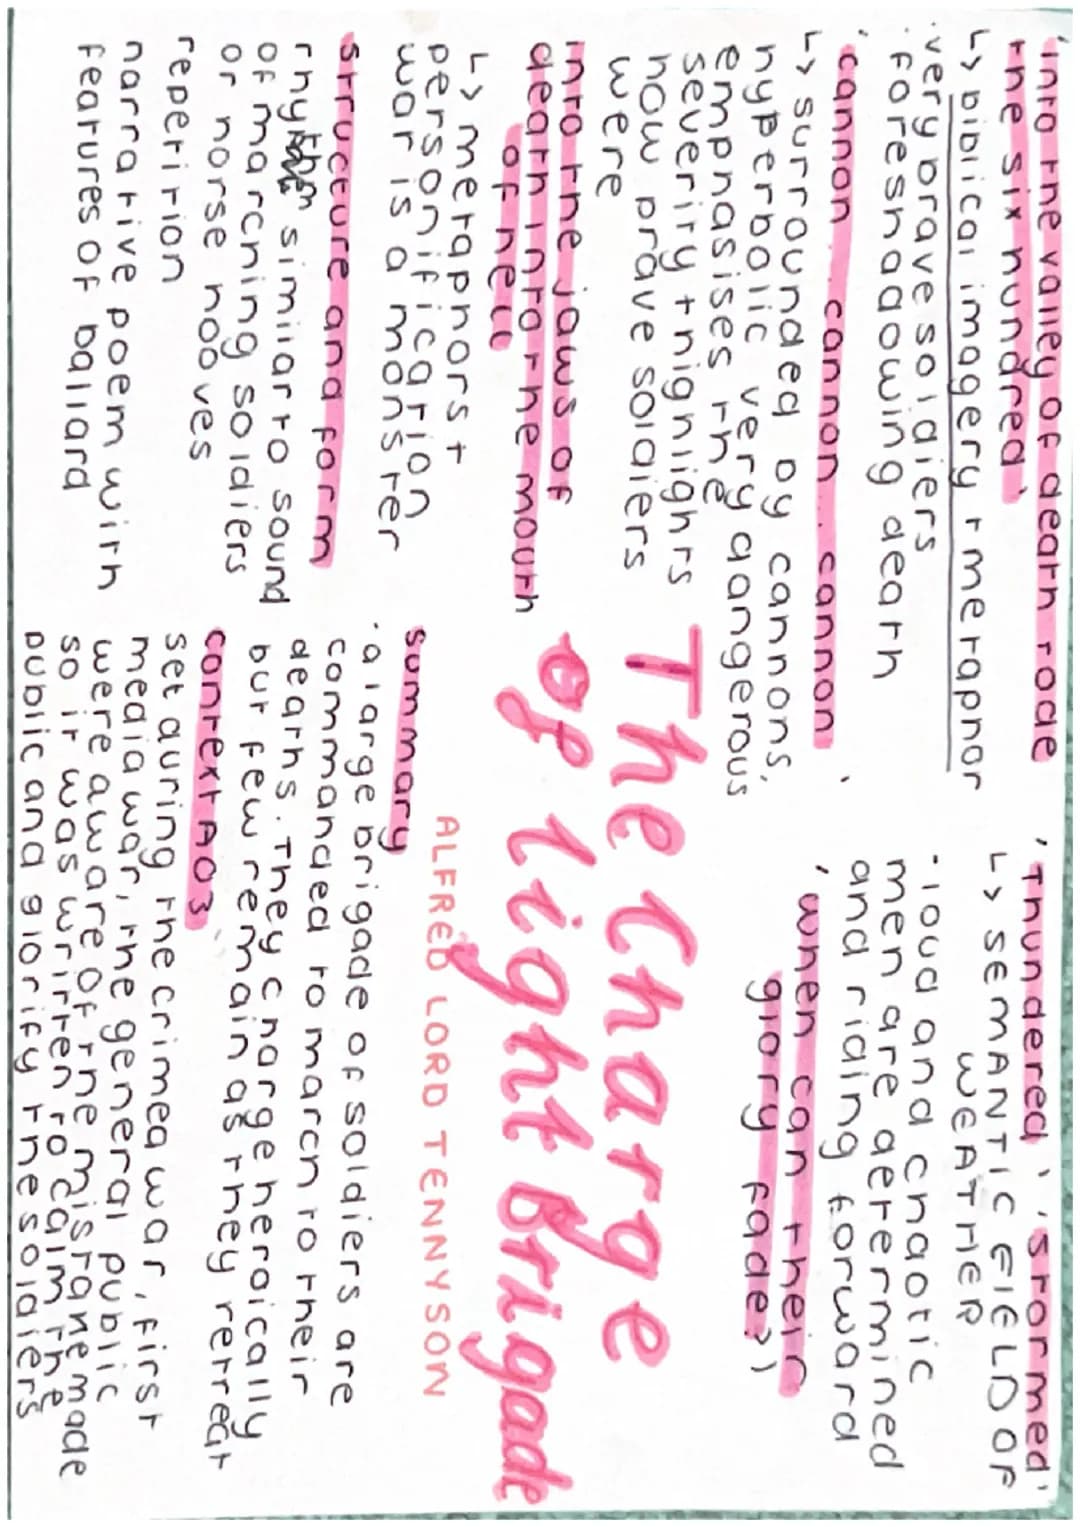 'into the valley of death rode
the six hundred'
↳ bibical imagery + metaphor
· very brave soldiers
· foreshadowing death
'cannon.. cannon.. cannon'
↳ surrounded by cannons,
hyperbolic very dangerous
emphasises the
severity + highlights
how brave soldiers
were
into the jaws of
death into the mouth
of hell
↳ metaphors +
personification
war is a monster
structure and form
rhythm similar to sound
of marching soldiers
or horse hooves
repetition
narrative poem with
features of ballard
'thundered', 'stormed'
↳ SEMANTIC FIELD OF
WEATHER
· loud and chaotic
men are determined
and riding forward
'when can their
glory fade?'
The Charge
Of Light Brigade
ALFRED LORD TENNYSON
summary
· a large brigade of soldiers are
commanded to march to their
deaths. They charge heroically
but few remain as they retreat
context AO3
set during the crimea war, first
media war, the general public
were aware of the mistake made
so it was written to calm the
public and glorify the soldiers